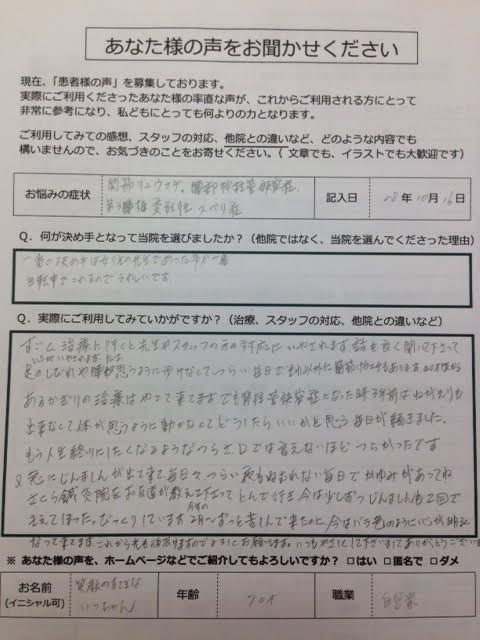 あなた様の声をお聞かせください
現在、「患者様の声」を募集しております。
実際にご利用くださったあなた様の率直な声が、これからご利用される方にとって
非常に参考になり、私どもにとっても何よりの力となります。
ご利用してみての感想、スタッフの対応、他院との違いなど、どのような内容でも
構いませんので、お気づきのことをお寄せください。（文章でも、イラストでも大歓迎です）
お悩みの症状
関節リュウマチ、腰部脊柱管狭窄症、
すべり症
記入日
28年10月16日
Q．何が決め手となって当院を選びましたか？（他院ではなく、当院を選んでくださった理由）
自転車でこれるのでうれしいです
Q．実際にご利用してみていかがですか？（治療、スタッフの対応、他院との違いなど）
治療に行くと先生やスタッフの方の対応にいやされます 話を良く聞いて下さって
思うように歩けなくてつらい毎日で
あるかぎりの治療はやって来てますでも脊柱管狭窄症になった時
出来なくて体が思うように動かなくてどうしたらいいかと思う毎日が続きました。
もう人生終りにしたくなるようなつらさ、口では言えないほどつらかったです
じんましんが出て来て毎日々つらい夜もねむれない毎日でかゆみがあってね
さくら鍼灸院をお友達が教えて下さってとんで行き今は少しずつじんましんも2回で
びっくりしています 今年の2月〜ずっと苦しんで来たのに今はバラ色のように心が明るく
なって来てます。これからも先生よろしくお願いします。いつもやさしくして下さいましてありがとうございます
※ あなた様の声を、ホームページなどでご紹介してもよろしいですか？ □はい □匿名で □ダメ
お名前
（イニシャル可）
笑顔のすてきな
いっちゃん
年齢
70才
職業
自営業